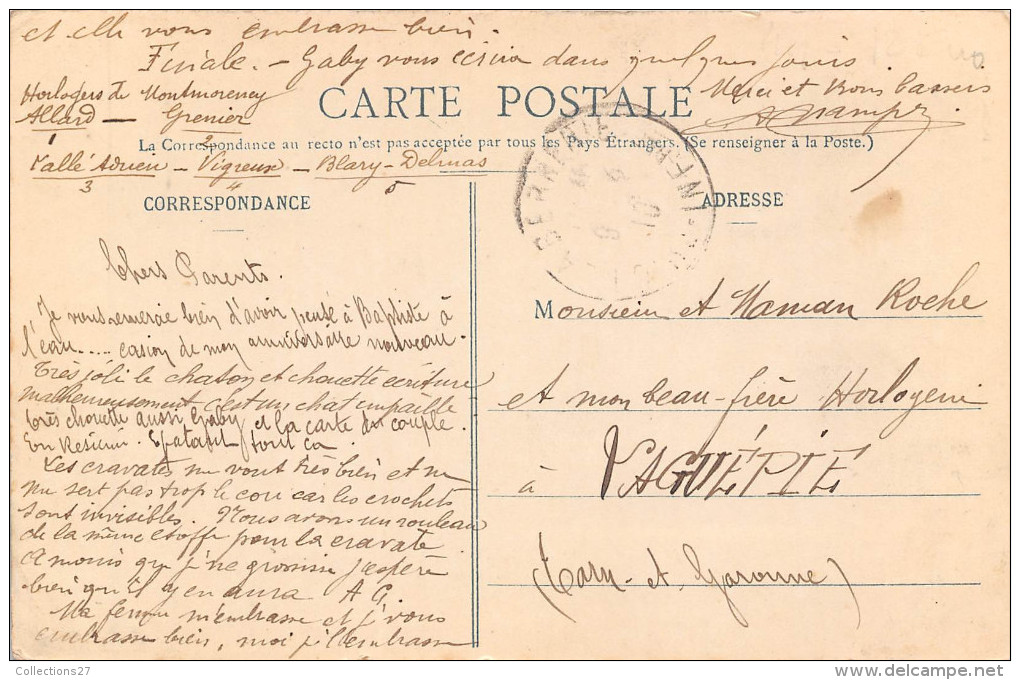 et elle vous embrasse bien.
Finale. — Gaby vous écrira dans quelques jours.
Horlogers de Montmorency
Allard — Grenier
1 2
Merci et Bons baisers
CARTE POSTALE
La Correspondance au recto n'est pas acceptée par tous les Pays Étrangers. (Se renseigner à la Poste.)
Vallé Adrien — Vigreux — Blary-Delmas
3 4 5
CORRESPONDANCE
ADRESSE
Chers Parents.
Je vous remercie bien d'avoir pensé à Baptiste à
l'eau..... casion de mon anniversaire nouveau.
Très joli le chaton et chouette ecriture
malheureusement c'est un chat empaillé
très chouette aussi Gaby et la carte du couple.
En Resumé. Epatant tout ca.
Les cravates me vont très bien et ne
me sert pas trop le cou car les crochets
sont invisibles. Nous avons un rouleau
de la même etoffe pour la cravate.
A moins que j'ne grossisse j'espère
bien qu'il y en aura A G.
Ma femme m'embrasse et j'vous
embrasse bien, moi j'l'embrasse
Monsieur et Maman Roche
et mon beau-frère Horlogerie
à VAGUÉPIE
(Tarn-et Garonne)
Collections27